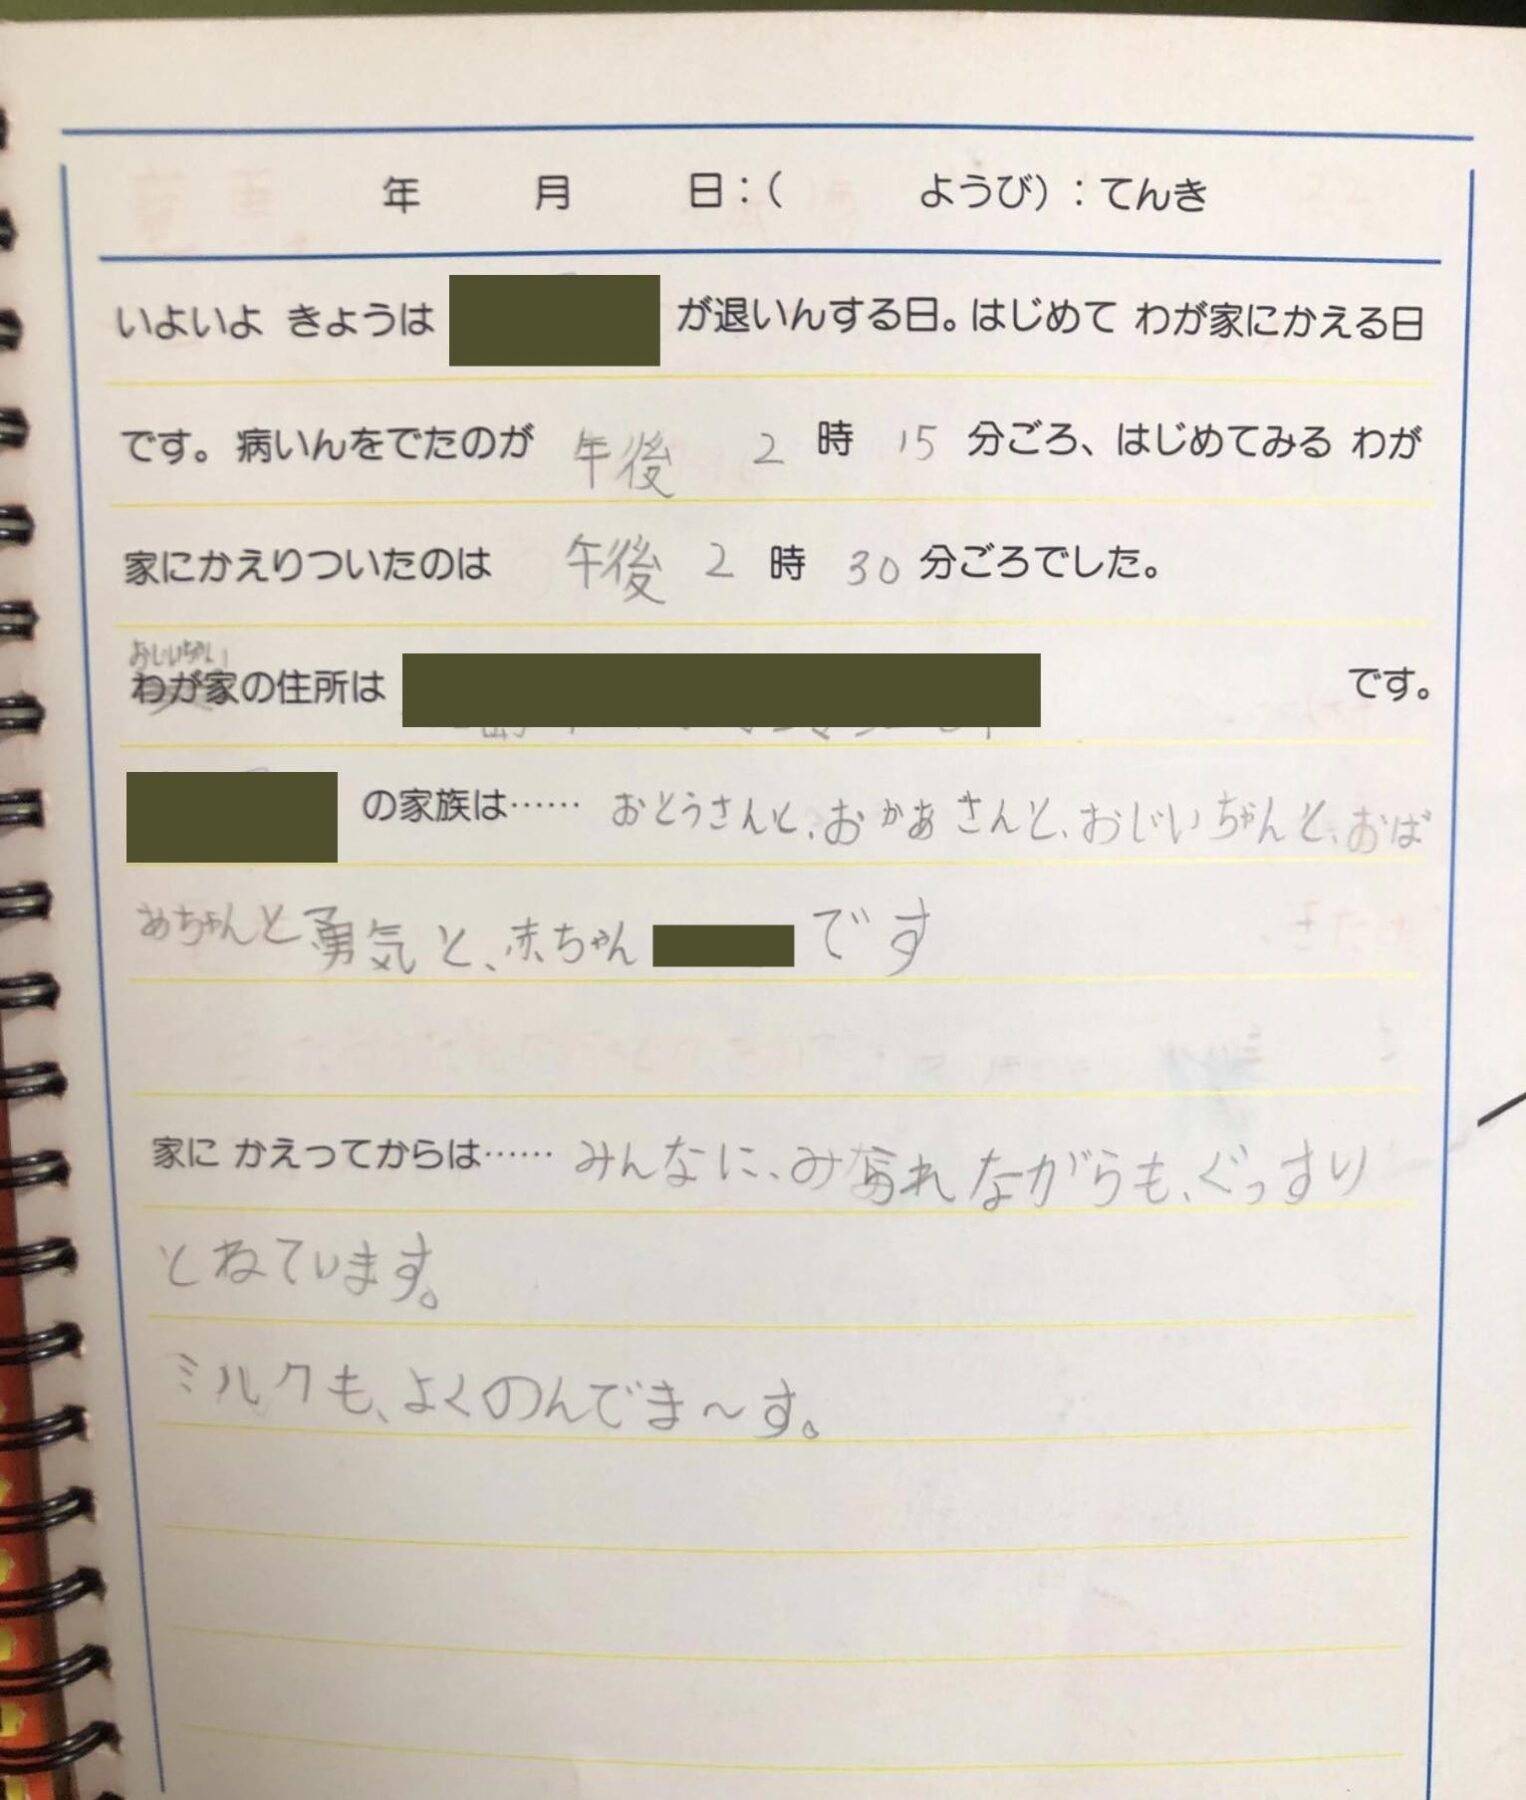 年 月 日：（ ようび）：てんき
いよいよ きょうは が退いんする日。はじめて わが家にかえる日
です。病いんをでたのが 午後 2 時 15 分ごろ、はじめてみる わが
家にかえりついたのは 午後 2 時 30 分ごろでした。
おじいちゃん
わが家の住所は です。
の家族は…… おとうさんと、おかあさんと、おじいちゃんと、おば
あちゃんと勇気と、赤ちゃん です
家に かえってからは…… みんなに、み られながらも、ぐっすり
とねています。
ミルクも、よくのんでま～す。